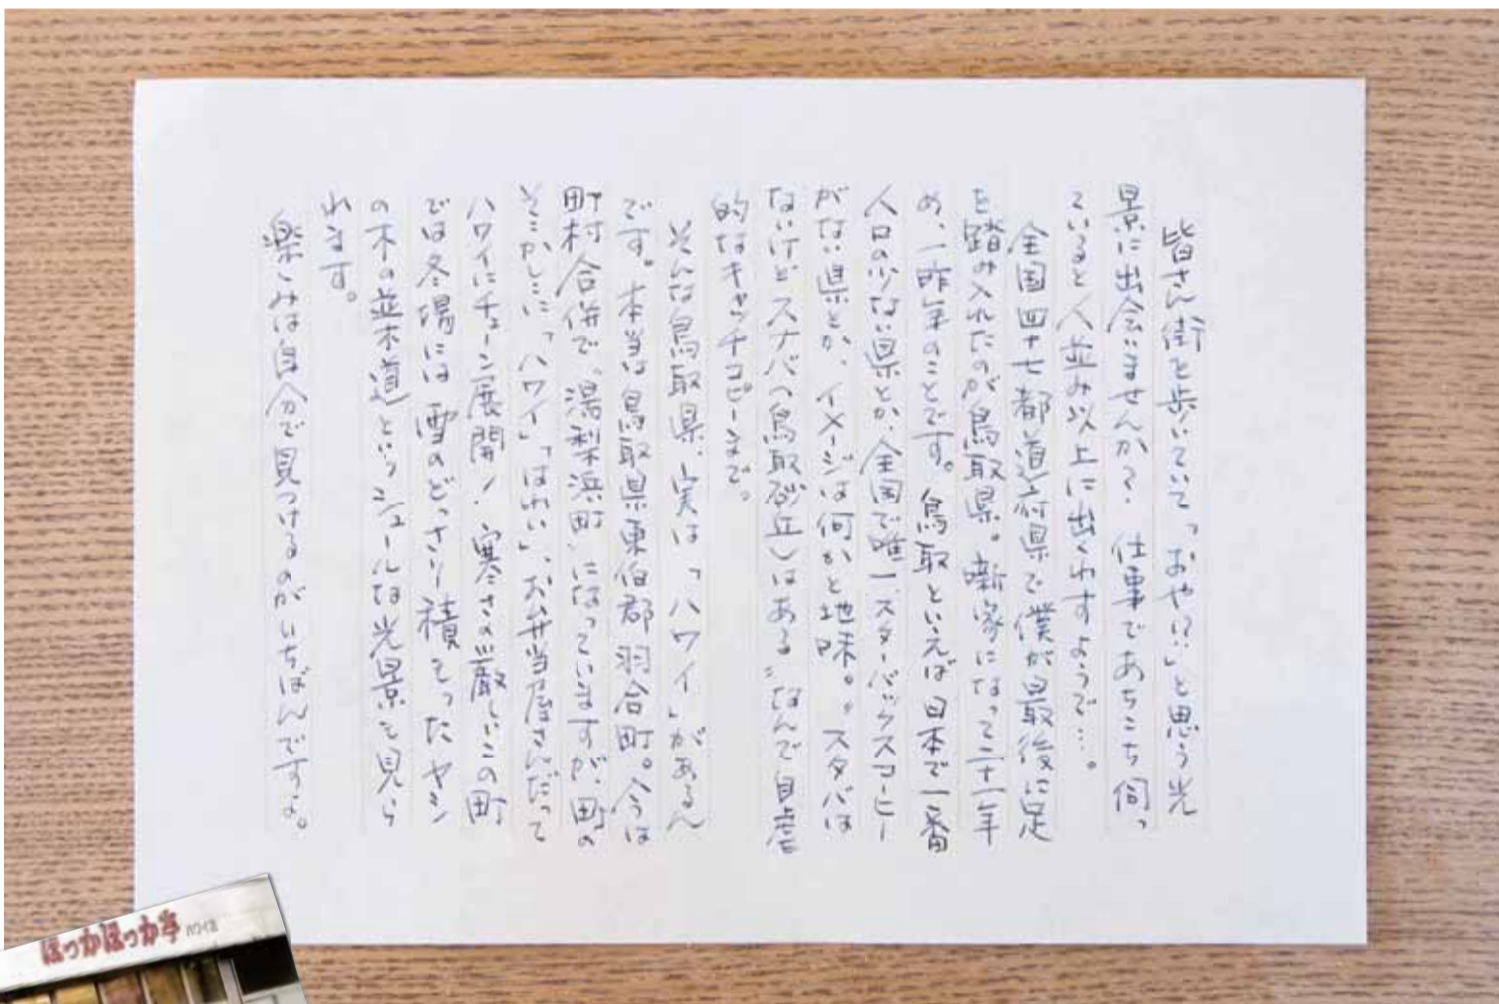 皆さん街を歩いていて「おや!?」と思う光
景に出会いませんか？　仕事であちこち伺っ
ていると人並み以上に出くわすようで…。
全国四十七都道府県で僕が最後に足
を踏み入れたのが鳥取県。噺家になって二十一年
め、一昨年のことです。鳥取といえば日本で一番
人口の少ない県とか、全国で唯一スターバックスコーヒー
がない県とか、イメージは何かと地味。〝スタバは
ないけどスナバ（鳥取砂丘）はある〟なんて自虐
的なキャッチコピーまで。
そんな鳥取県、実は「ハワイ」があるん
です。本当は鳥取県東伯郡羽合町。今は
町村合併で〝湯梨浜町〟になっていますが、町の
そこかしこに「ハワイ」「はわい」、お弁当屋さんだって
ハワイにチェーン展開！　寒さの厳しいこの町
では冬場には雪のどっさり積もったヤシ
の木の並木道というシュールな光景も見ら
れます。
楽しみは自分で見つけるのがいちばんですよ。
ほっかほっか亭 ハワイ店